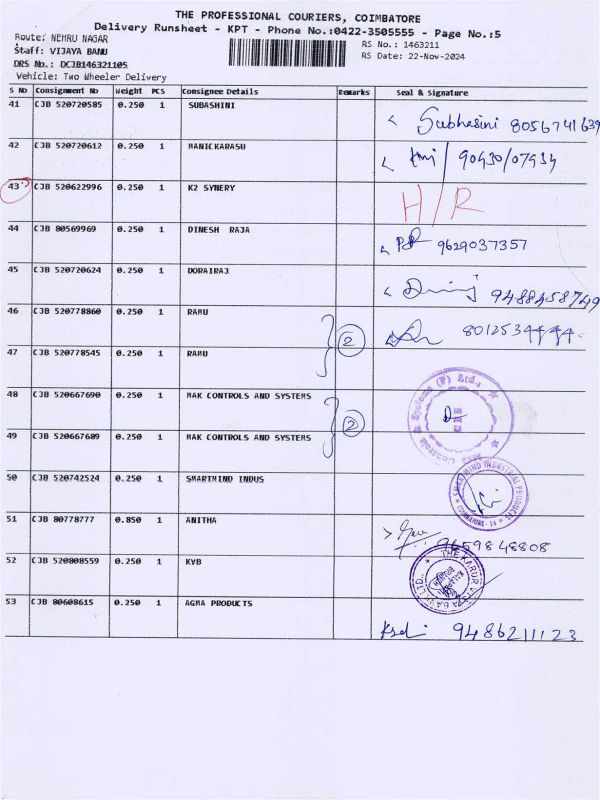 THE PROFESSIONAL COURIERS, COIMBATORE
Delivery Runsheet - KPT - Phone No.:0422-3505555 - Page No.:5
Route: NEHRU NAGAR
RS No.: 1463211
Staff: VIJAYA BANU
RS Date: 22-Nov-2024
DRS No.: DCJB146321105
Vehicle: Two Wheeler Delivery
S No Consignment No Weight PCS Consignee Details Remarks Seal & Signature
41 CJB 520720585 0.250 1 SUBASHINI Subhasini 8056741639
42 CJB 520720612 0.250 1 MANICKARASU 90430/07934
43 CJB 520622996 0.250 1 K2 SYNERY H/R
44 CJB 80569969 0.250 1 DINESH RAJA 9629037357
45 CJB 520720624 0.250 1 DORAIRAJ 9488458749
46 CJB 520778860 0.250 1 RAMU 2
47 CJB 520778545 0.250 1 RAMU
48 CJB 520667690 0.250 1 MAK CONTROLS AND SYSTEMS 2
49 CJB 520667689 0.250 1 MAK CONTROLS AND SYSTEMS
50 CJB 520742524 0.250 1 SMARTMIND INDUS SMARTMIND INDUSTRIAL PRODUCTS COIMBATORE - 14
51 CJB 80778777 0.850 1 ANITHA 9659848808
52 CJB 520808559 0.250 1 KVB THE KARUR VYSYA BANK LTD.
53 CJB 80608615 0.250 1 AGMA PRODUCTS 9486211123